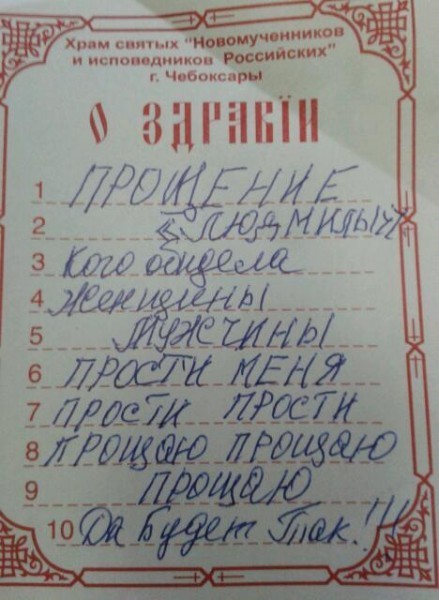 Храм святых "Новомученников
и исповедников Российских"
г. Чебоксары
О ЗДРАВІИ
1 ПРОЩЕНИЕ
2 ЛЮДМИЛЫ
3 Кого обидела
4 Женщины
5 МУЖЧИНЫ
6 ПРОСТИ МЕНЯ
7 ПРОСТИ ПРОСТИ
8 ПРОЩАЮ ПРОЩАЮ
9 ПРОЩАЮ
10 Да Будет Так!!!